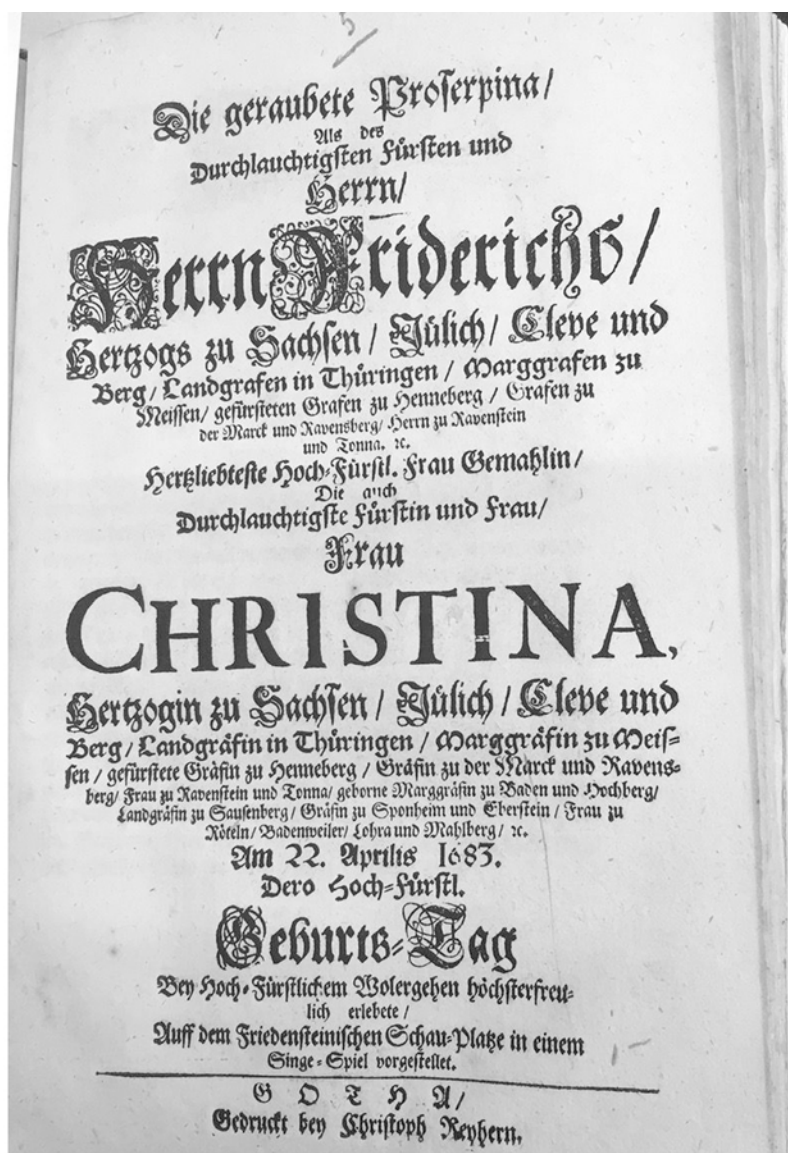 5
Die geraubete Proserpina/
Als des
Durchlauchtigsten Fürsten und
Herrn/
Herrn Friderichs/
Hertzogs zu Sachsen / Jülich / Cleve und
Berg / Landgrafen in Thüringen / Marggrafen zu
Meissen / gefürsteten Grafen zu Henneberg / Grafen zu
der Marck und Ravensberg / Herrn zu Ravenstein
und Tonna. ꝛc.
Hertzliebteste Hoch-Fürstl. Frau Gemahlin /
Die auch
Durchlauchtigste Fürstin und Frau/
Frau
CHRISTINA,
Hertzogin zu Sachsen / Jülich / Cleve und
Berg / Landgräfin in Thüringen / Marggräfin zu Meis-
sen / gefürstete Gräfin zu Henneberg / Gräfin zu der Marck und Ravens-
berg / Frau zu Ravenstein und Tonna / geborne Marggräfin zu Baden und Hochberg /
Landgräfin zu Sausenberg / Gräfin zu Sponheim und Eberstein / Frau zu
Röteln / Badenweiler / Lohra und Mahlberg / ꝛc.
Am 22. Aprilis 1683.
Dero Hoch-Fürstl.
Geburts-Tag
Bey Hoch-Fürstlichem Wolergehen höchsterfreu-
lich erlebete /
Auff dem Friedensteinischen Schau-Platze in einem
Singe-Spiel vorgestellet.
GOTHA /
Gedruckt bey Christoph Reyhern.